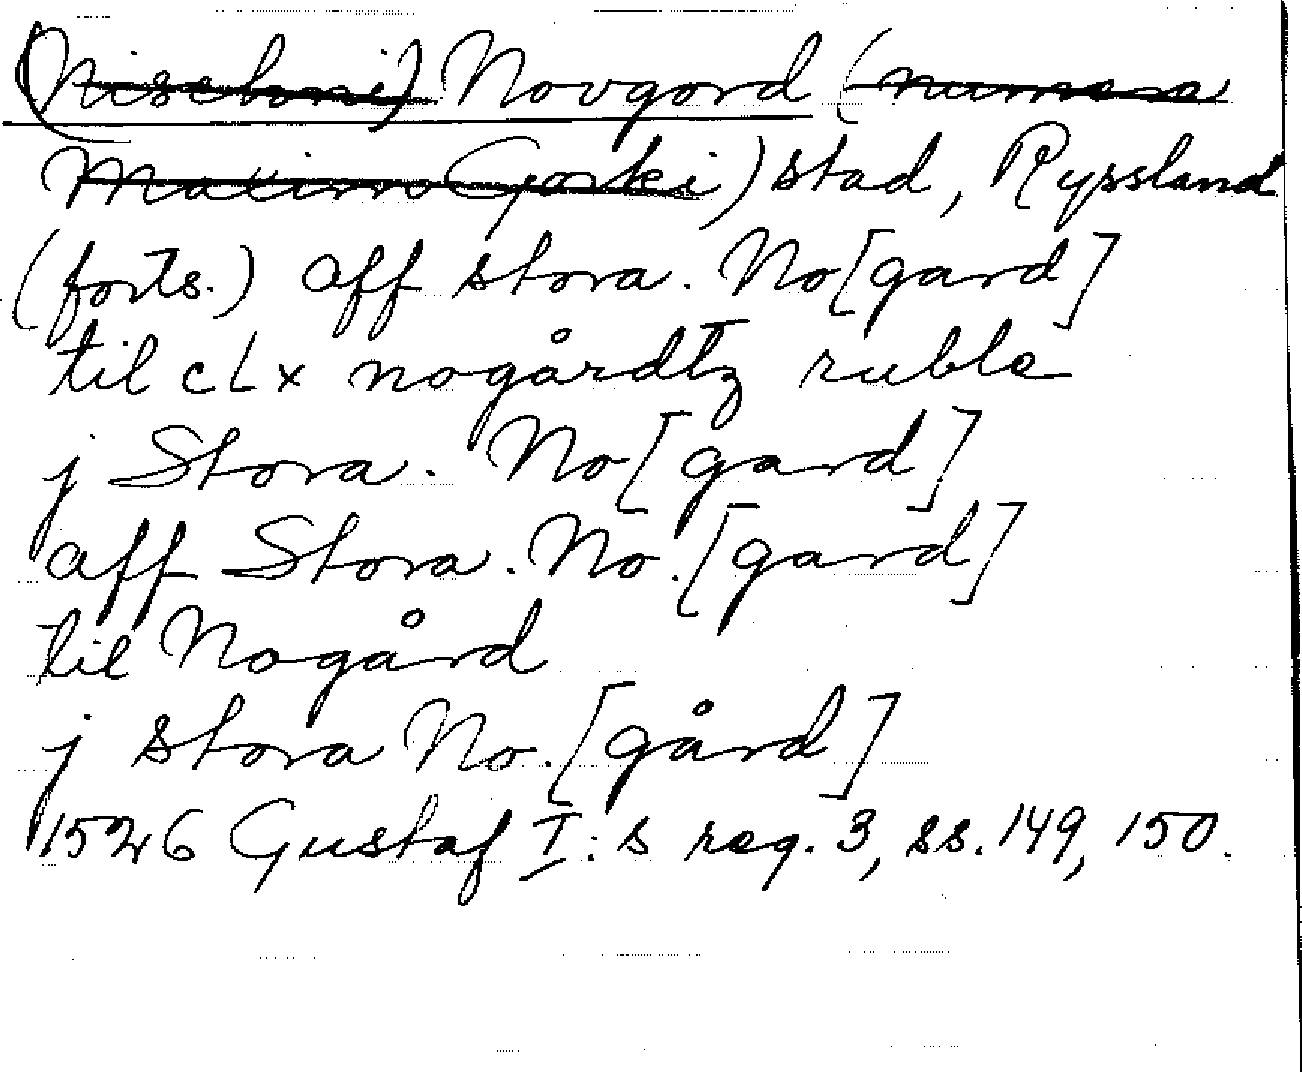 (Nischni) Novgord (numera
Maxim Gorki) stad, Ryssland
(forts.) aff stora. No[gard]
til cLx nogårdtz ruble
j Stora. No[gard]
aff Stora. No.[gard]
til Nogård
j stora No.[gård]
1526 Gustaf I:s reg. 3, ss. 149, 150.